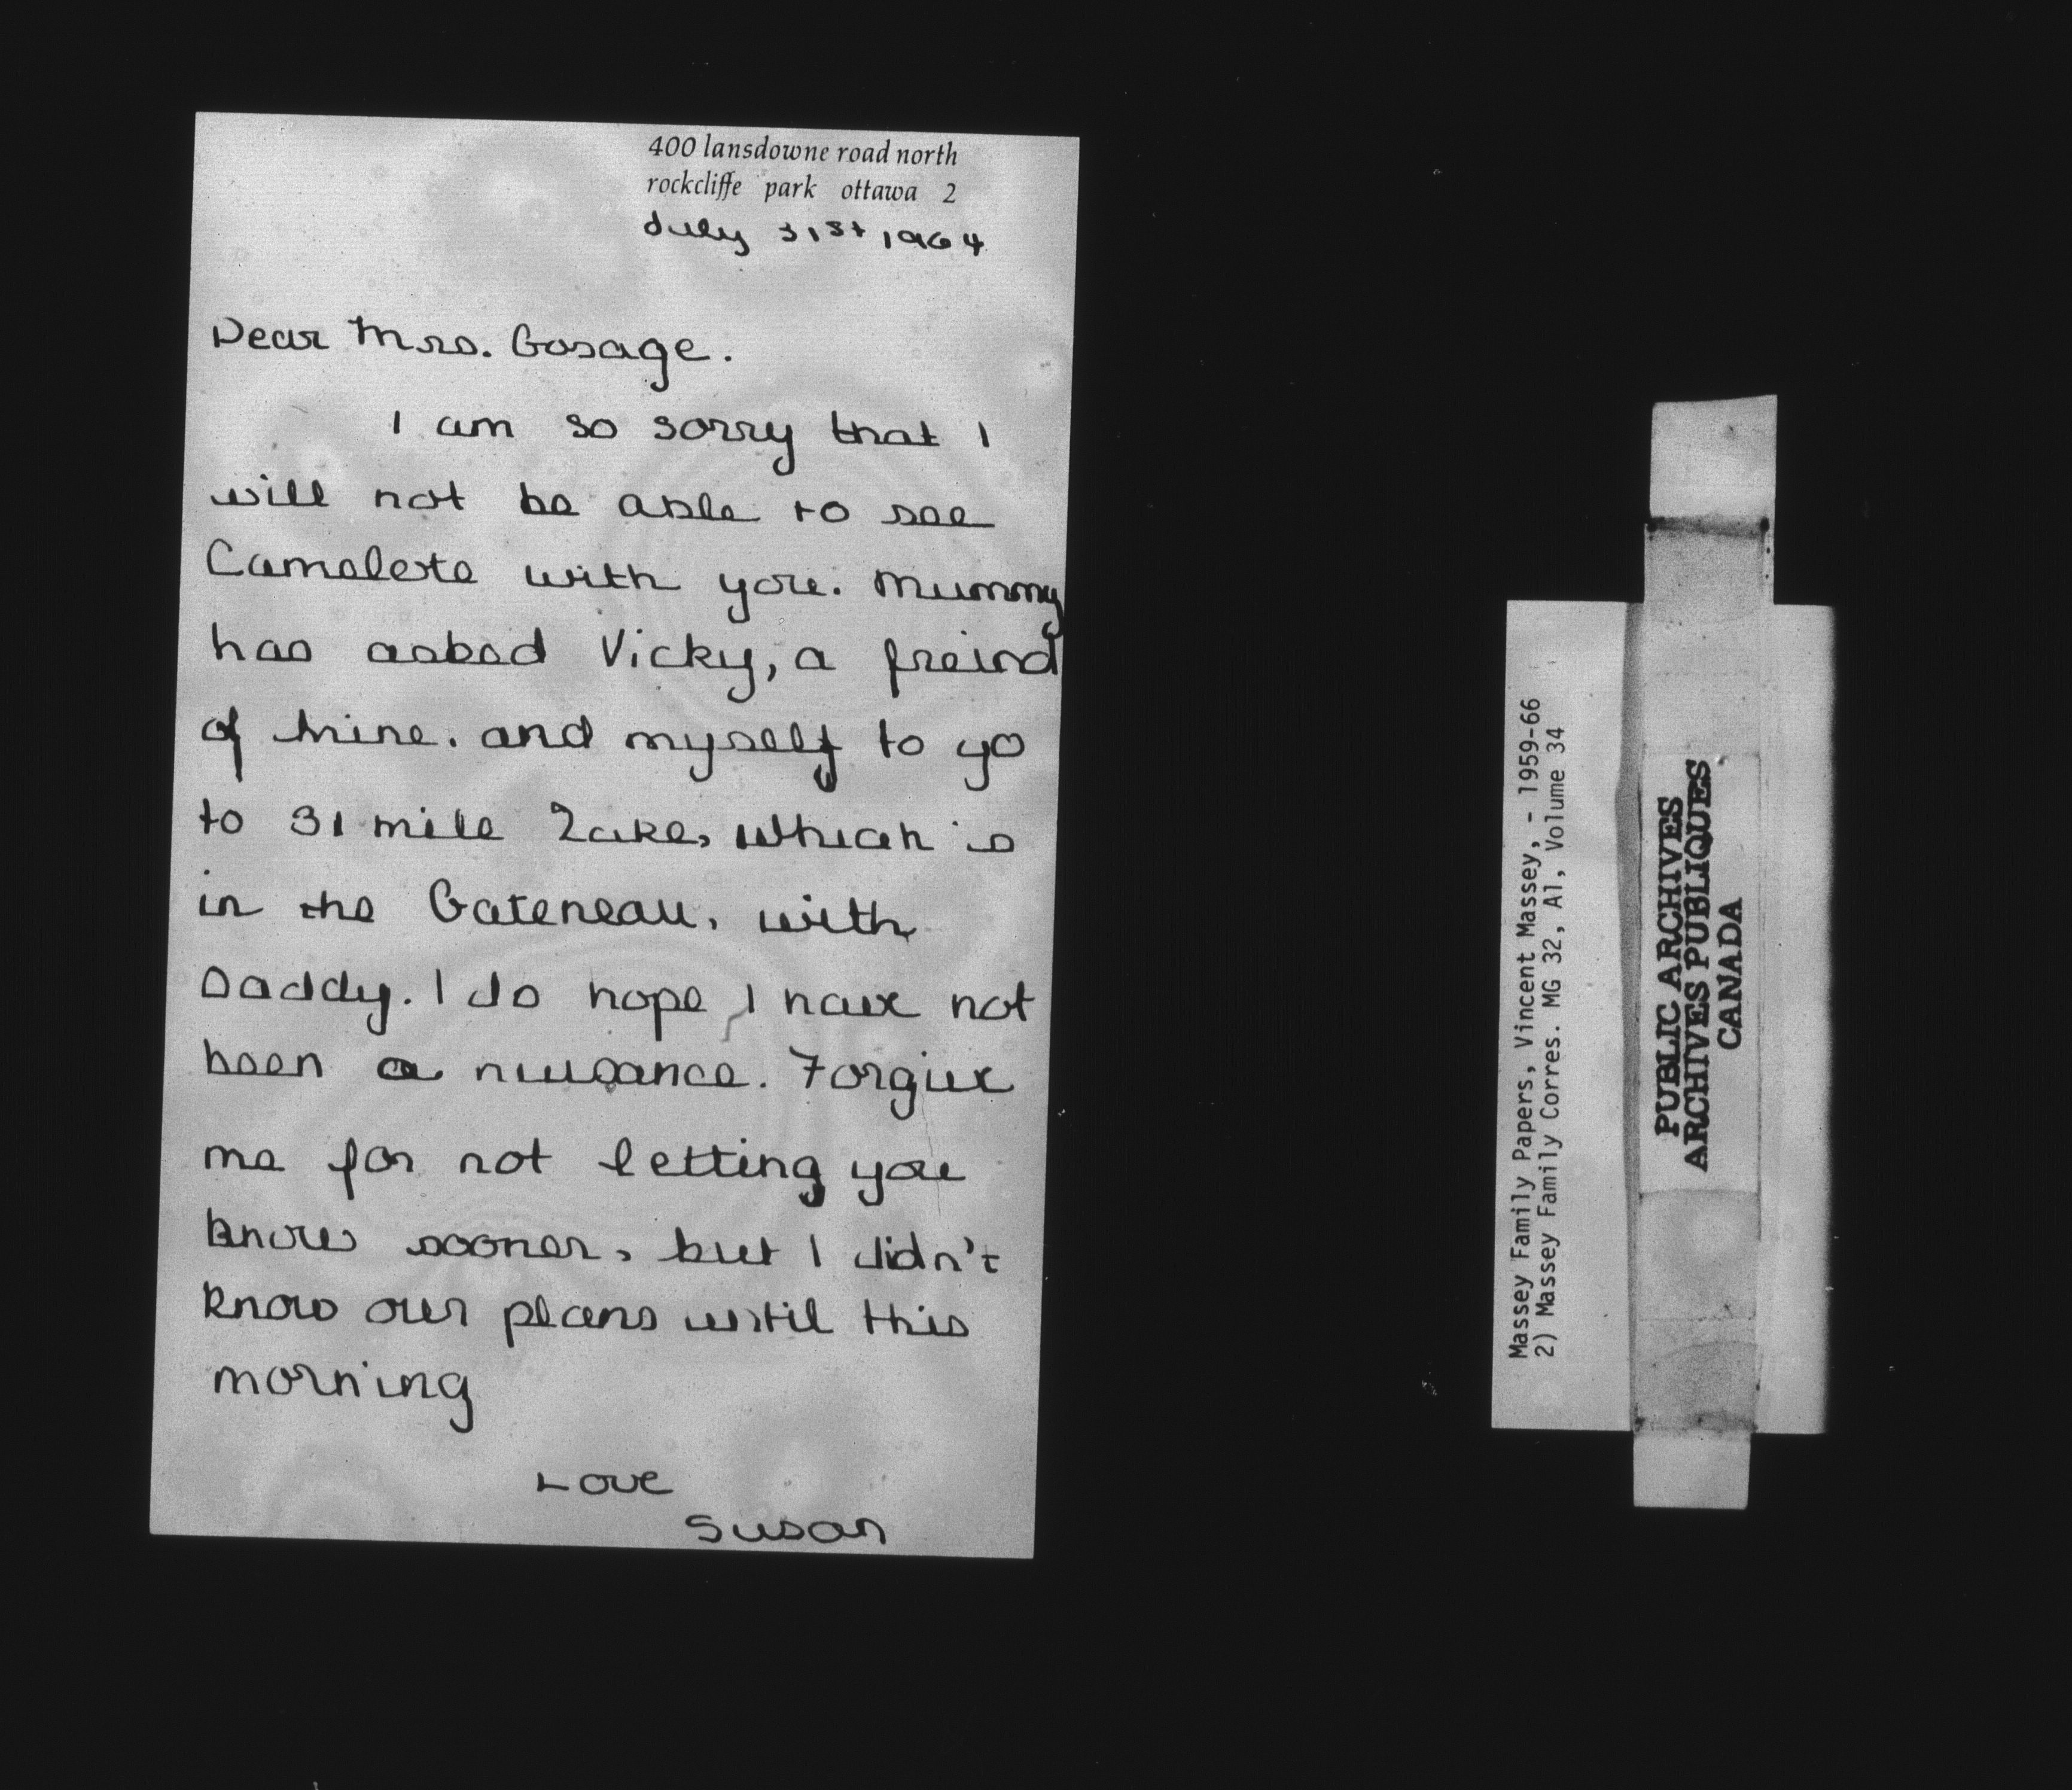 400 lansdowne road north
rockcliffe park ottawa 2
July 31st 1964
Dear Mrs. Gosage.
I am so sorry that I
will not be able to see
Camelote with you. Mummy
has asked Vicky, a freind
of mine. and myself to go
to 31 mile Lake, which is
in the Gateneau, with
Daddy. I do hope I have not
been a nuisance. Forgive
me for not letting you
know sooner, but I didn't
know our plans until this
morning
Love
Susan
Massey Family Papers, Vincent Massey, - 1959-66
2) Massey Family Corres. MG 32, A1, Volume 34
PUBLIC ARCHIVES
ARCHIVES PUBLIQUES
CANADA